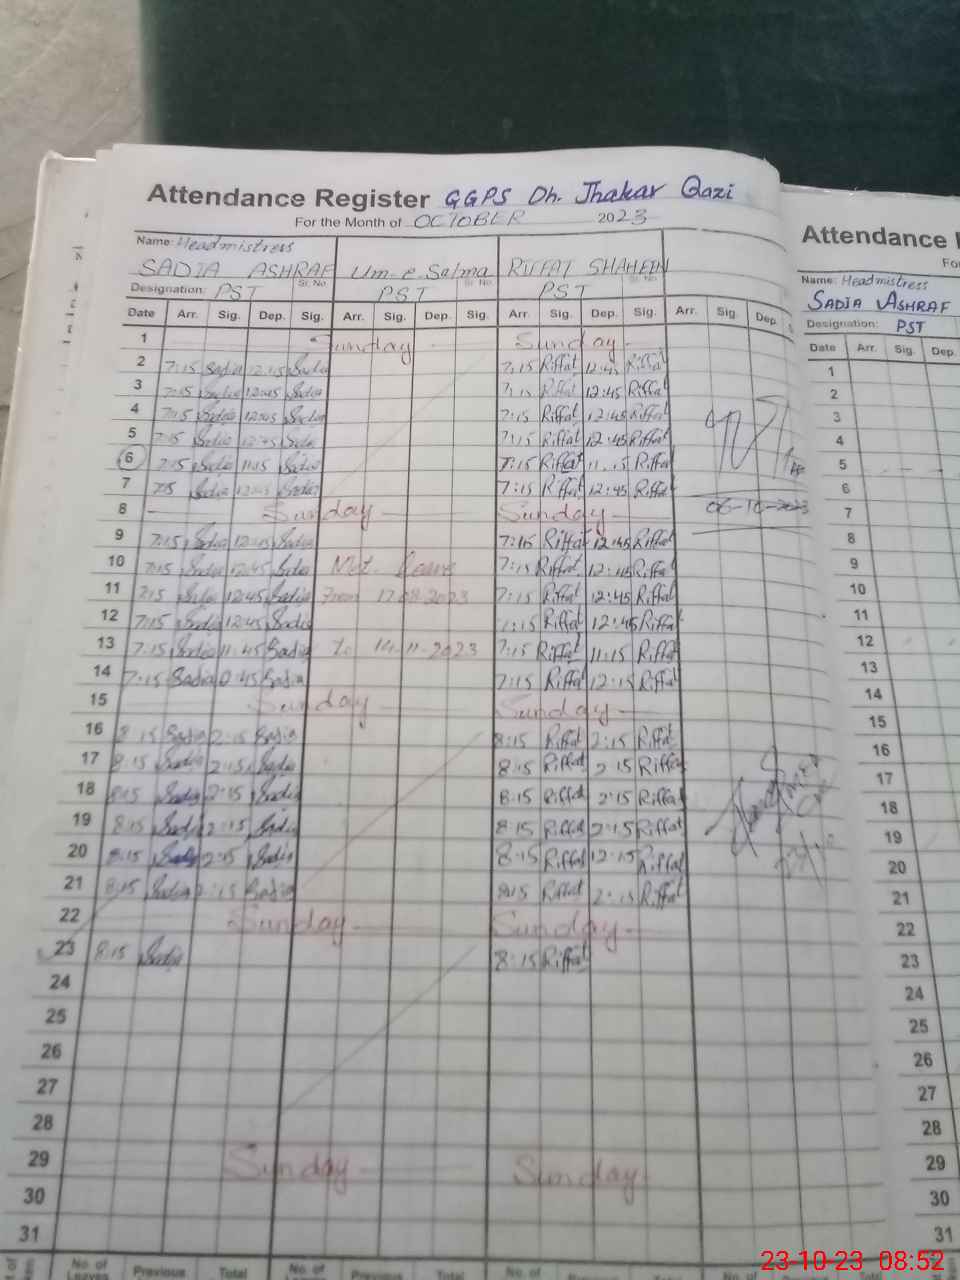 Attendance Register GGPS Dh. Jhakar Qazi
For the Month of OCTOBER 2023
Name: Headmistress
SADIA ASHRAF Um-e-Salma RIFFAT SHAHEEN
Sr. No. Sr. No. Sr. No.
Designation: PST PST PST
Date Arr. Sig. Dep. Sig. Arr. Sig. Dep. Sig. Arr. Sig. Dep. Sig. Arr. Sig. Dep.
1 Sunday Sunday
2 7:15 Sadia 12:45 Sadia 7:15 Riffat 12:45 Riffat
3 7:15 Sadia 12:45 Sadia 7:15 Riffat 12:45 Riffat
4 7:15 Sadia 12:45 Sadia 7:15 Riffat 12:45 Riffat
5 7:15 Sadia 12:45 Sadia 7:15 Riffat 12:45 Riffat
6 7:15 Sadia 11:15 Sadia 7:15 Riffat 11:15 Riffat
7 7:15 Sadia 12:45 Sadia 7:15 Riffat 12:45 Riffat
06-10-2023
8 Sunday Sunday
9 7:15 Sadia 12:45 Sadia 7:15 Riffat 12:45 Riffat
10 7:15 Sadia 12:45 Sadia Mat. Leave 7:15 Riffat 12:45 Riffat
11 7:15 Sadia 12:45 Sadia From 17.08.2023 7:15 Riffat 12:45 Riffat
12 7:15 Sadia 12:45 Sadia 7:15 Riffat 12:45 Riffat
13 7:15 Sadia 11:45 Sadia to 14-11-2023 7:15 Riffat 11:15 Riffat
14 7:15 Sadia Sadia 7:15 Riffat 12:15 Riffat
15 Sunday Sunday
16 8:15 Sadia 2:15 Sadia 8:15 Riffat 2:15 Riffat
17 8:15 Sadia 2:15 Sadia 8:15 Riffat 2:15 Riffat
18 8:15 Sadia 2:15 Sadia 8:15 Riffat 2:15 Riffat
19 8:15 Sadia 2:15 Sadia 8:15 Riffat 2:15 Riffat
20 8:15 Sadia 2:15 Sadia 8:15 Riffat 12:15 Riffat
21 8:15 Sadia 2:15 Sadia 8:15 Riffat 2:15 Riffat
22 Sunday Sunday
23 8:15 Sadia 8:15 Riffat
24
25
26
27
28
29 Sunday Sunday
30
31
No. of Leaves Previous Total No. of Leaves Previous Total No. of
Attendance
Name: Headmistress
SADIA ASHRAF
Designation: PST
Date Arr. Sig. Dep.
1
2
3
4
5
6
7
8
9
10
11
12
13
14
15
16
17
18
19
20
21
22
23
24
25
26
27
28
29
30
31
23-10-23 08:52